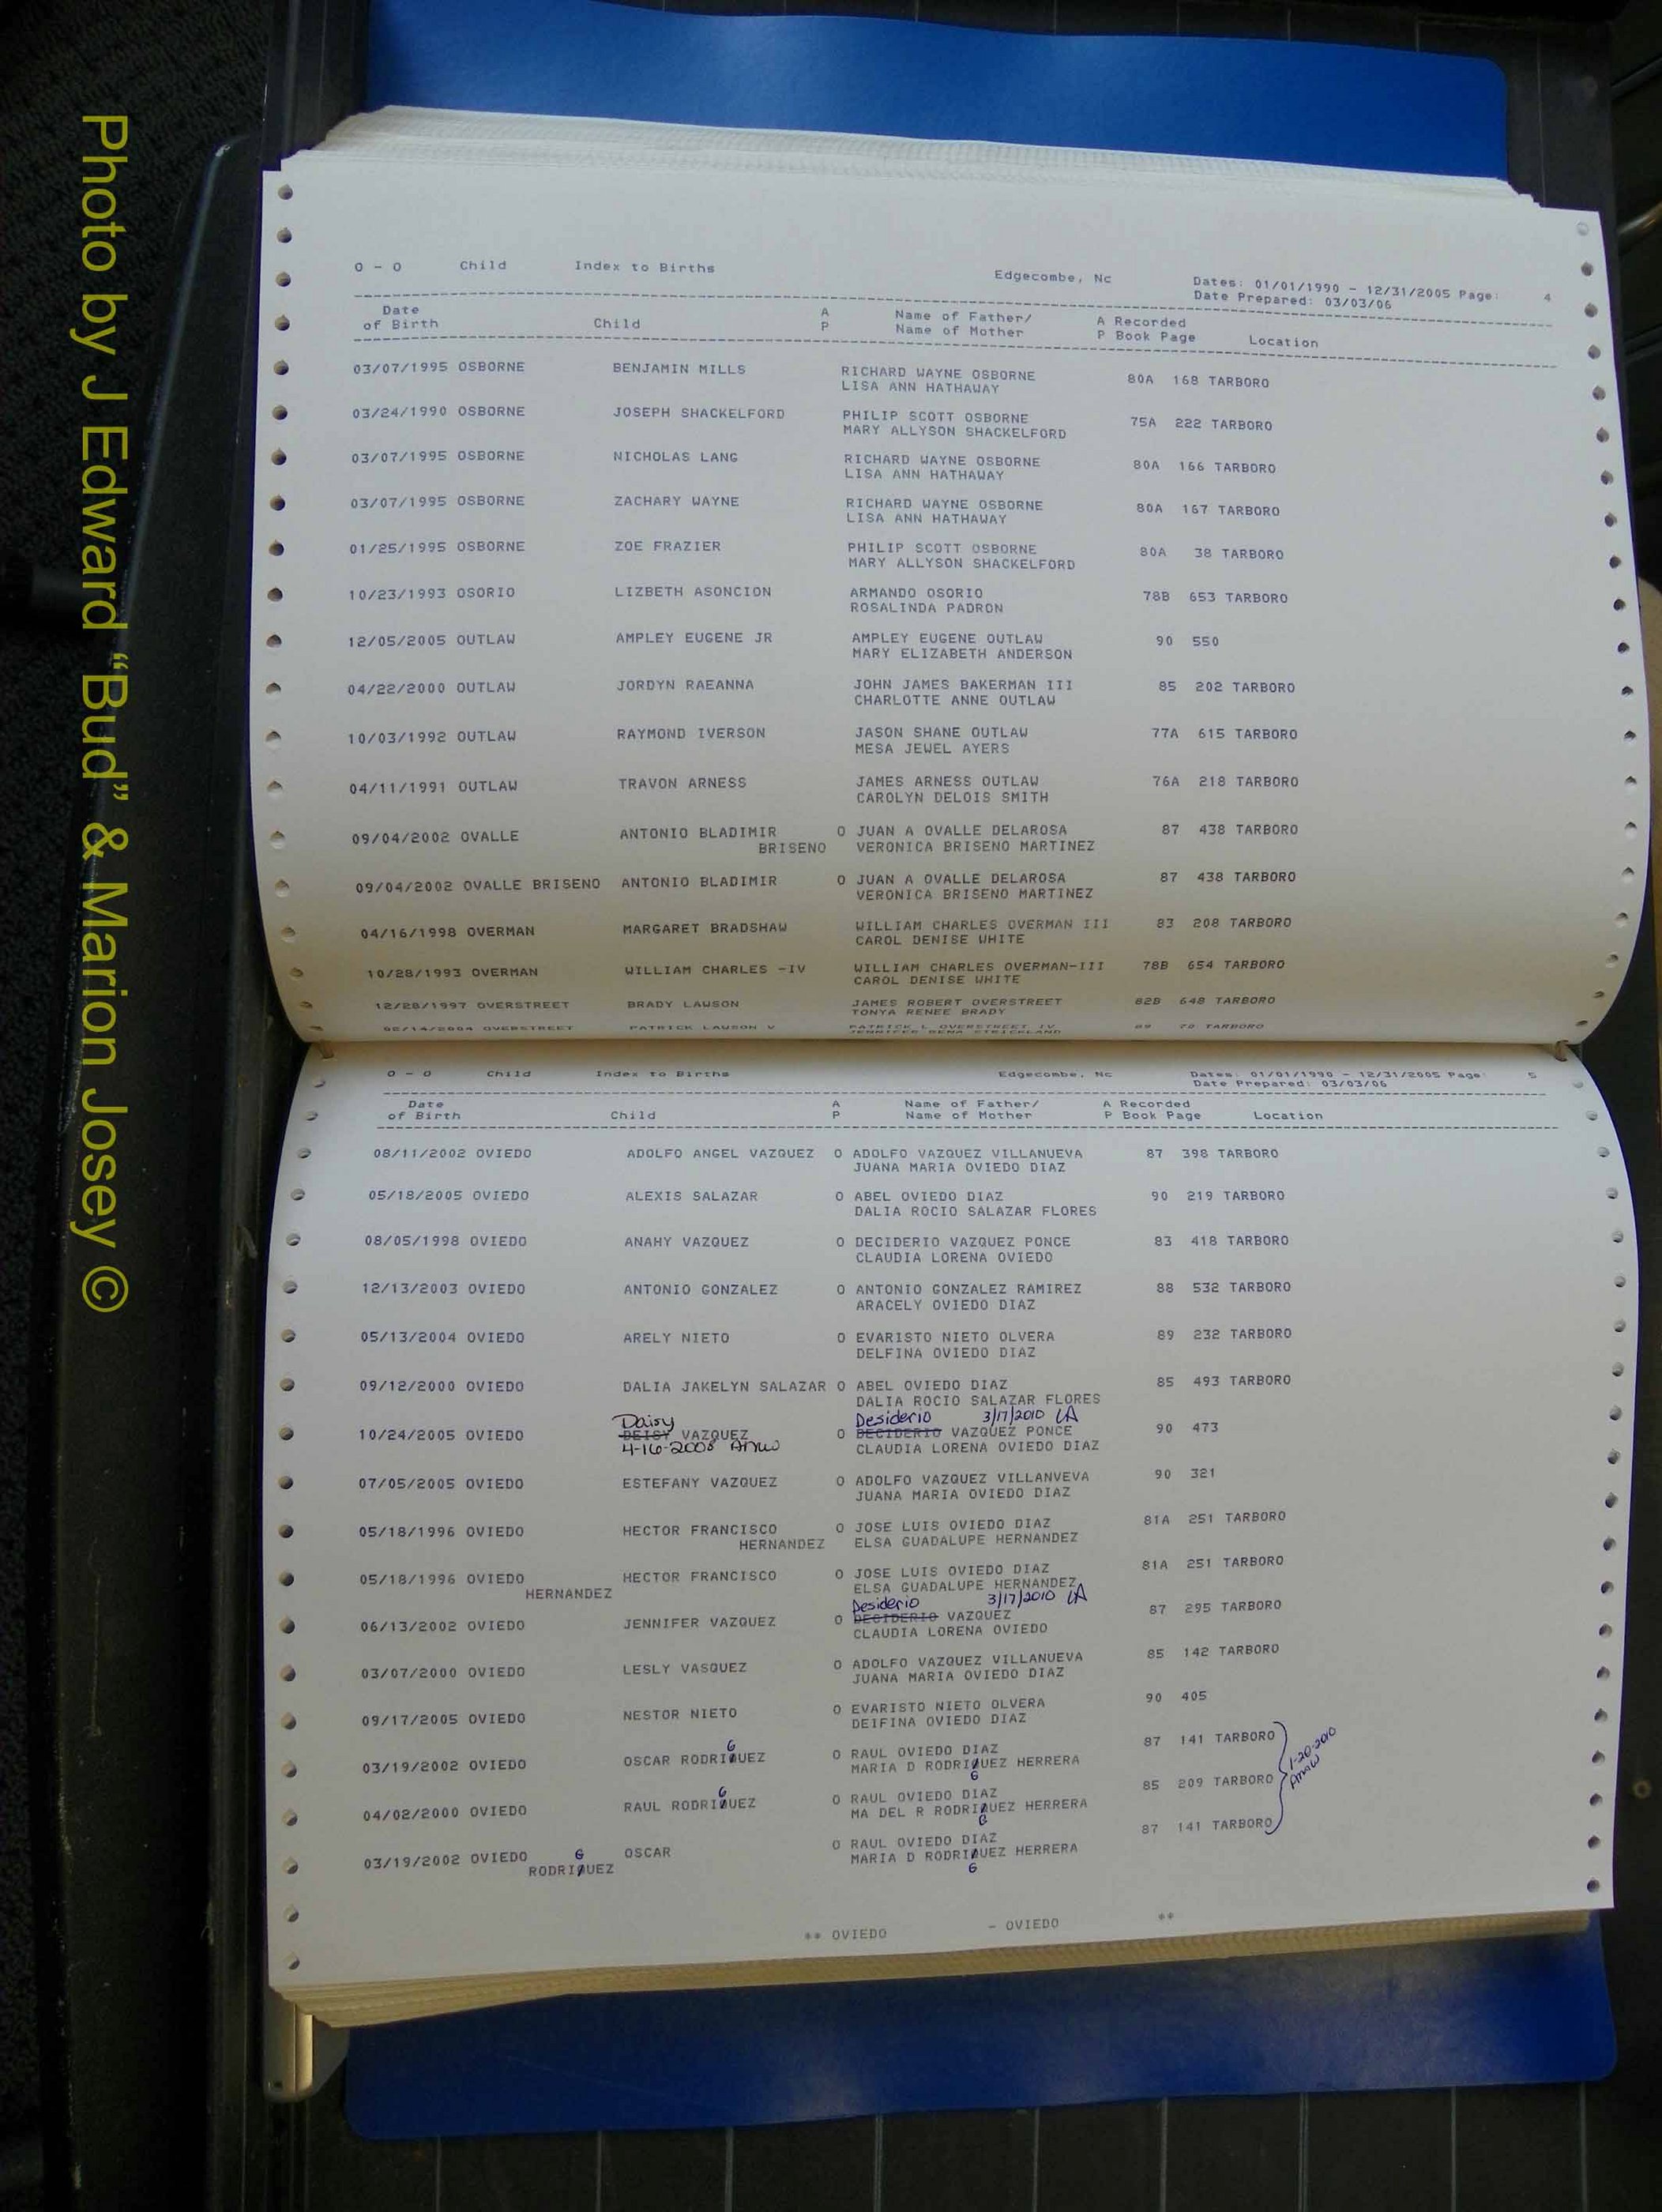 O - O Child Index to Births Edgecombe, Nc Dates: 01/01/1990 - 12/31/2005 Page: 4
Date Prepared: 03/03/06
Date A Name of Father/ A Recorded
of Birth Child P Name of Mother P Book Page Location
03/07/1995 OSBORNE BENJAMIN MILLS RICHARD WAYNE OSBORNE 80A 168 TARBORO
LISA ANN HATHAWAY
03/24/1990 OSBORNE JOSEPH SHACKELFORD PHILIP SCOTT OSBORNE 75A 222 TARBORO
MARY ALLYSON SHACKELFORD
03/07/1995 OSBORNE NICHOLAS LANG RICHARD WAYNE OSBORNE 80A 166 TARBORO
LISA ANN HATHAWAY
03/07/1995 OSBORNE ZACHARY WAYNE RICHARD WAYNE OSBORNE 80A 167 TARBORO
LISA ANN HATHAWAY
01/25/1995 OSBORNE ZOE FRAZIER PHILIP SCOTT OSBORNE 80A 38 TARBORO
MARY ALLYSON SHACKELFORD
10/23/1993 OSORIO LIZBETH ASONCION ARMANDO OSORIO 78B 653 TARBORO
ROSALINDA PADRON
12/05/2005 OUTLAW AMPLEY EUGENE JR AMPLEY EUGENE OUTLAW 90 550
MARY ELIZABETH ANDERSON
04/22/2000 OUTLAW JORDYN RAEANNA JOHN JAMES BAKERMAN III 85 202 TARBORO
CHARLOTTE ANNE OUTLAW
10/03/1992 OUTLAW RAYMOND IVERSON JASON SHANE OUTLAW 77A 615 TARBORO
MESA JEWEL AYERS
04/11/1991 OUTLAW TRAVON ARNESS JAMES ARNESS OUTLAW 76A 218 TARBORO
CAROLYN DELOIS SMITH
09/04/2002 OVALLE ANTONIO BLADIMIR O JUAN A OVALLE DELAROSA 87 438 TARBORO
BRISENO VERONICA BRISENO MARTINEZ
09/04/2002 OVALLE BRISENO ANTONIO BLADIMIR O JUAN A OVALLE DELAROSA 87 438 TARBORO
VERONICA BRISENO MARTINEZ
04/16/1998 OVERMAN MARGARET BRADSHAW WILLIAM CHARLES OVERMAN III 83 208 TARBORO
CAROL DENISE WHITE
10/28/1993 OVERMAN WILLIAM CHARLES -IV WILLIAM CHARLES OVERMAN-III 78B 654 TARBORO
CAROL DENISE WHITE
12/28/1997 OVERSTREET BRADY LAWSON JAMES ROBERT OVERSTREET 82B 648 TARBORO
TONYA RENEE BRADY
02/14/2004 OVERSTREET PATRICK LAWSON V PATRICK L OVERSTREET IV 89 70 TARBORO
JENNIFER STRICKLAND
O - O Child Index to Births Edgecombe, Nc Dates: 01/01/1990 - 12/31/2005 Page: 5
Date Prepared: 03/03/06
Date A Name of Father/ A Recorded
of Birth Child P Name of Mother P Book Page Location
08/11/2002 OVIEDO ADOLFO ANGEL VAZQUEZ O ADOLFO VAZQUEZ VILLANUEVA 87 398 TARBORO
JUANA MARIA OVIEDO DIAZ
05/18/2005 OVIEDO ALEXIS SALAZAR O ABEL OVIEDO DIAZ 90 219 TARBORO
DALIA ROCIO SALAZAR FLORES
08/05/1998 OVIEDO ANAHY VAZQUEZ O DECIDERIO VAZQUEZ PONCE 83 418 TARBORO
CLAUDIA LORENA OVIEDO
12/13/2003 OVIEDO ANTONIO GONZALEZ O ANTONIO GONZALEZ RAMIREZ 88 532 TARBORO
ARACELY OVIEDO DIAZ
05/13/2004 OVIEDO ARELY NIETO O EVARISTO NIETO OLVERA 89 232 TARBORO
DELFINA OVIEDO DIAZ
09/12/2000 OVIEDO DALIA JAKELYN SALAZAR O ABEL OVIEDO DIAZ 85 493 TARBORO
DALIA ROCIO SALAZAR FLORES
Daisy Desiderio 3/17/2010 LA
10/24/2005 OVIEDO DEISY VAZQUEZ O DECIDERIO VAZQUEZ PONCE 90 473
4-16-2008 AMW CLAUDIA LORENA OVIEDO DIAZ
07/05/2005 OVIEDO ESTEFANY VAZQUEZ O ADOLFO VAZQUEZ VILLANVEVA 90 321
JUANA MARIA OVIEDO DIAZ
05/18/1996 OVIEDO HECTOR FRANCISCO O JOSE LUIS OVIEDO DIAZ 81A 251 TARBORO
HERNANDEZ ELSA GUADALUPE HERNANDEZ
05/18/1996 OVIEDO HECTOR FRANCISCO O JOSE LUIS OVIEDO DIAZ 81A 251 TARBORO
HERNANDEZ ELSA GUADALUPE HERNANDEZ
Desiderio 3/17/2010 LA
06/13/2002 OVIEDO JENNIFER VAZQUEZ O DECIDERIO VAZQUEZ 87 295 TARBORO
CLAUDIA LORENA OVIEDO
03/07/2000 OVIEDO LESLY VASQUEZ O ADOLFO VAZQUEZ VILLANUEVA 85 142 TARBORO
JUANA MARIA OVIEDO DIAZ
09/17/2005 OVIEDO NESTOR NIETO O EVARISTO NIETO OLVERA 90 405
DEIFINA OVIEDO DIAZ
G
03/19/2002 OVIEDO OSCAR RODRIQUEZ O RAUL OVIEDO DIAZ 87 141 TARBORO
MARIA D RODRIQUEZ HERRERA
G
1-20-2010
AMW
G
04/02/2000 OVIEDO RAUL RODRIQUEZ O RAUL OVIEDO DIAZ 85 209 TARBORO
MA DEL R RODRIQUEZ HERRERA
G
03/19/2002 OVIEDO OSCAR O RAUL OVIEDO DIAZ 87 141 TARBORO
G
RODRIQUEZ MARIA D RODRIQUEZ HERRERA
G
** OVIEDO - OVIEDO **
Photo by J Edward “Bud” & Marion Josey ©